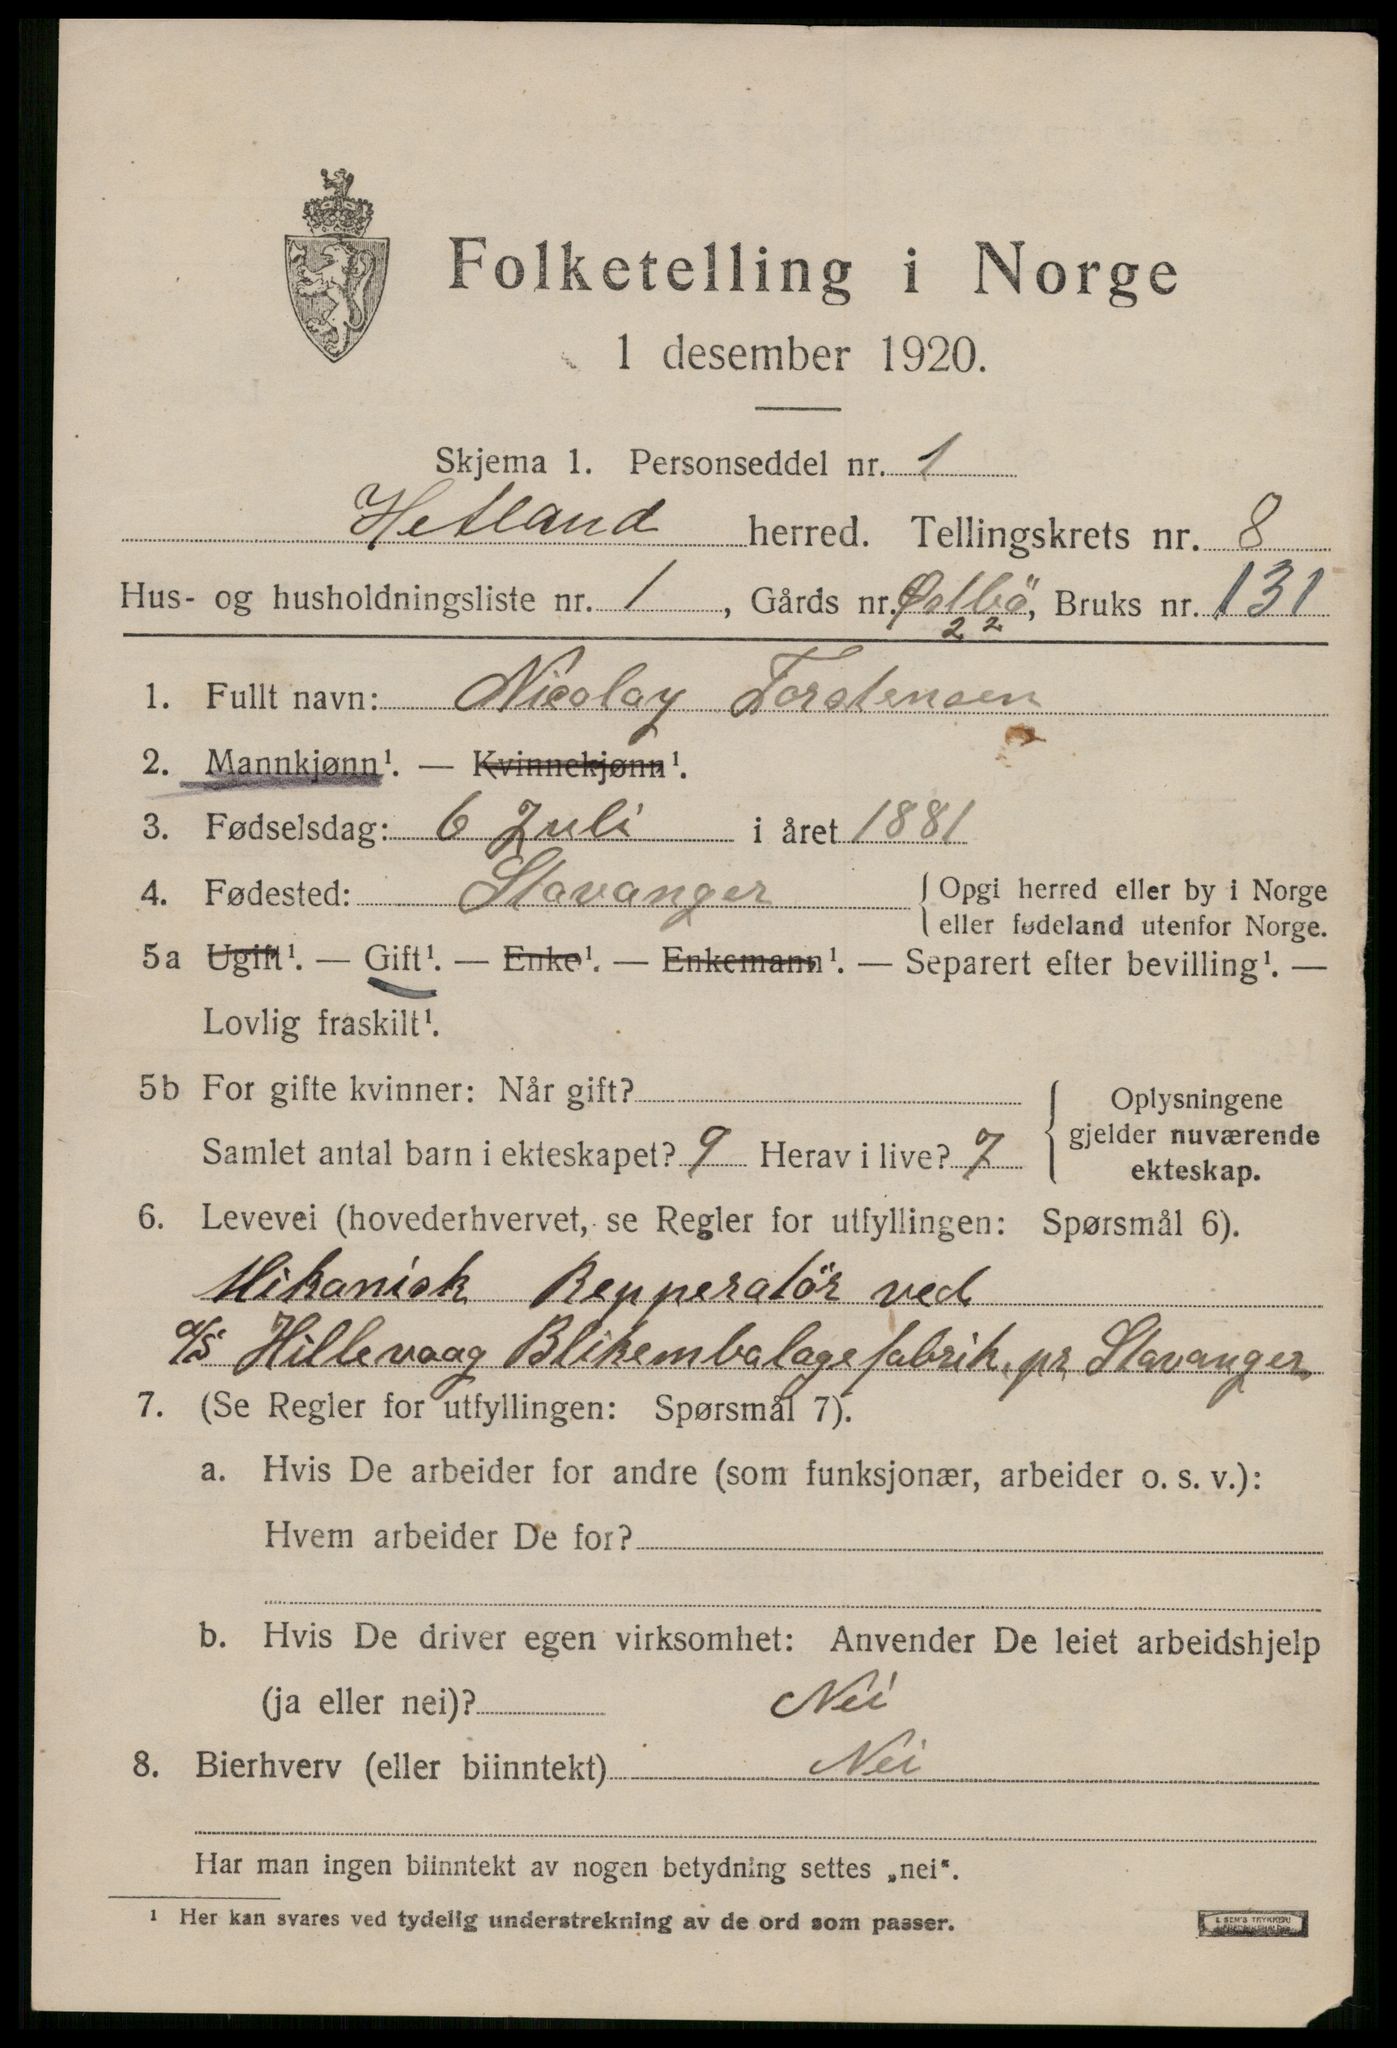 Folketelling i Norge
1 desember 1920.
Skjema 1. Personseddel nr. 1
Hetland herred. Tellingskrets nr. 8
Hus- og husholdningsliste nr. 1, Gårds nr. Østbö, Bruks nr. 131
22
1. Fullt navn: Nicolay Torstensen
2. Mannkjønn¹. — Kvinnekjønn¹.
3. Fødselsdag: 6 Juli i året 1881
4. Fødested: Stavanger { Opgi herred eller by i Norge
eller fødeland utenfor Norge.
5a Ugift¹. — Gift¹. — Enke¹. — Enkemann¹. — Separert efter bevilling¹. —
Lovlig fraskilt¹.
5b For gifte kvinner: Når gift?
Samlet antal barn i ekteskapet? 9 Herav i live? 7
Oplysningene
gjelder nuværende
ekteskap.
6. Levevei (hovederhvervet, se Regler for utfyllingen: Spørsmål 6).
Mikanisk Repperatör ved
a/s Hillevaag Blikembalagefabrik pr Stavanger
7. (Se Regler for utfyllingen: Spørsmål 7).
a. Hvis De arbeider for andre (som funksjonær, arbeider o. s. v.):
Hvem arbeider De for?
b. Hvis De driver egen virksomhet: Anvender De leiet arbeidshjelp
(ja eller nei)? Nei
8. Bierhverv (eller biinntekt) Nei
Har man ingen biinntekt av nogen betydning settes „nei“.
¹ Her kan svares ved tydelig understrekning av de ord som passer.
E SEM'S TRYKKERI
FREDRIKSHALD